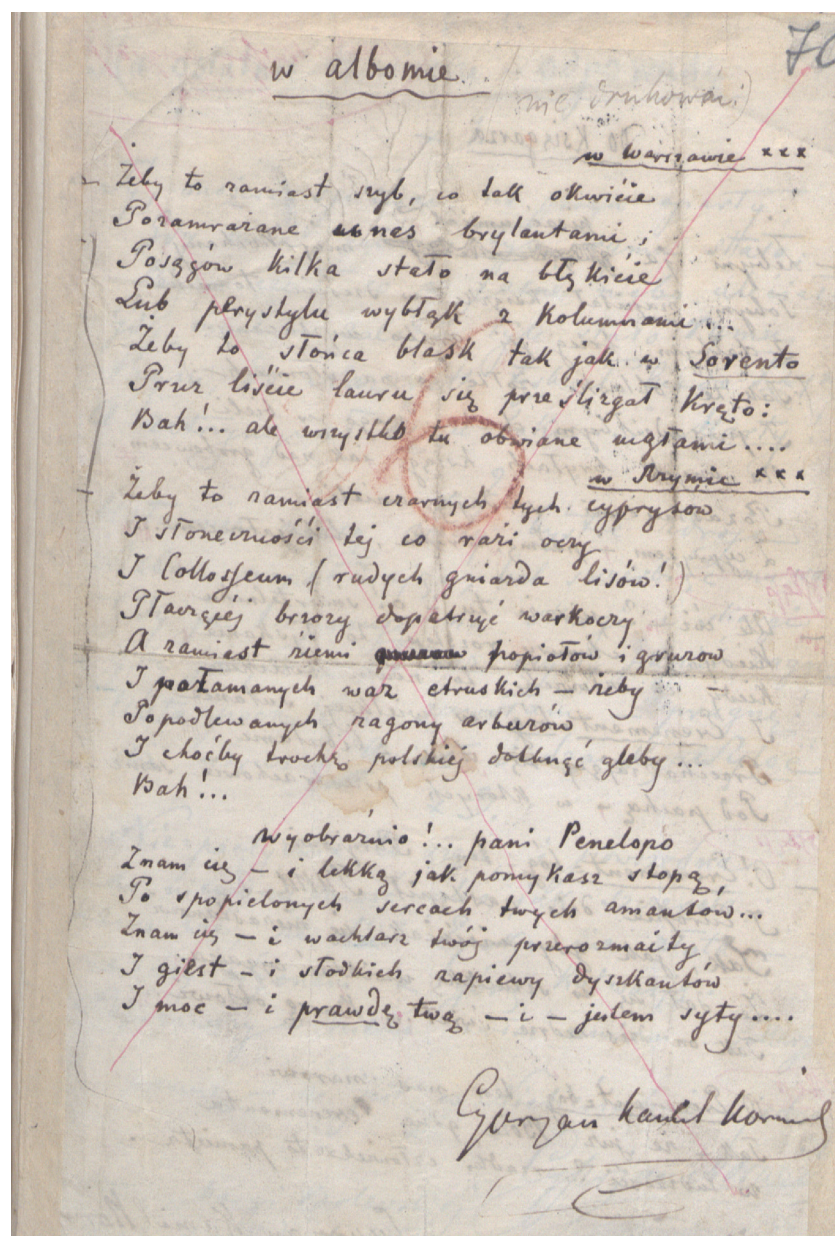 w albomie
70
(nie drukować)
w Warszawie xxx
Żeby to zamiast szyb, co tak okwicie
Pozamrażane u nas brylantami;
Posągów kilka stało na błękicie
Lub perystylu wybłąk z kolumnami...
Żeby to słońca blask tak jak w Sorento
Przez liście lauru się prześlizgał kręto:
Bah!... ale wszystko tu obwiane mgłami....
w Rzymie xxx
Żeby to zamiast czarnych tych cyprysów
I słoneczności tej co razi oczy
I Collosseum (rudych gniazda lisów!)
Płaczącéj brzozy dopatrzyć warkoczy
A zamiast ziemi popiołów i gruzow
I połamanych waz etruskich – żeby
Popodlewanych zagony arbuzów
I choćby trochę polskiéj dotknąć gleby...
Bah!...
Wyobraźnio!.. pani Penelopo
Znam cię – i lekką jak pomykasz stopą
Po spopielonych sercach twych amantów...
Znam cię – i wachlarz twój przerozmaity
I giest – i słodkich zapiewy dyszkantów
I moc – i prawdę twą – i – jestem syty....
Cyprjan Kamil Norwid